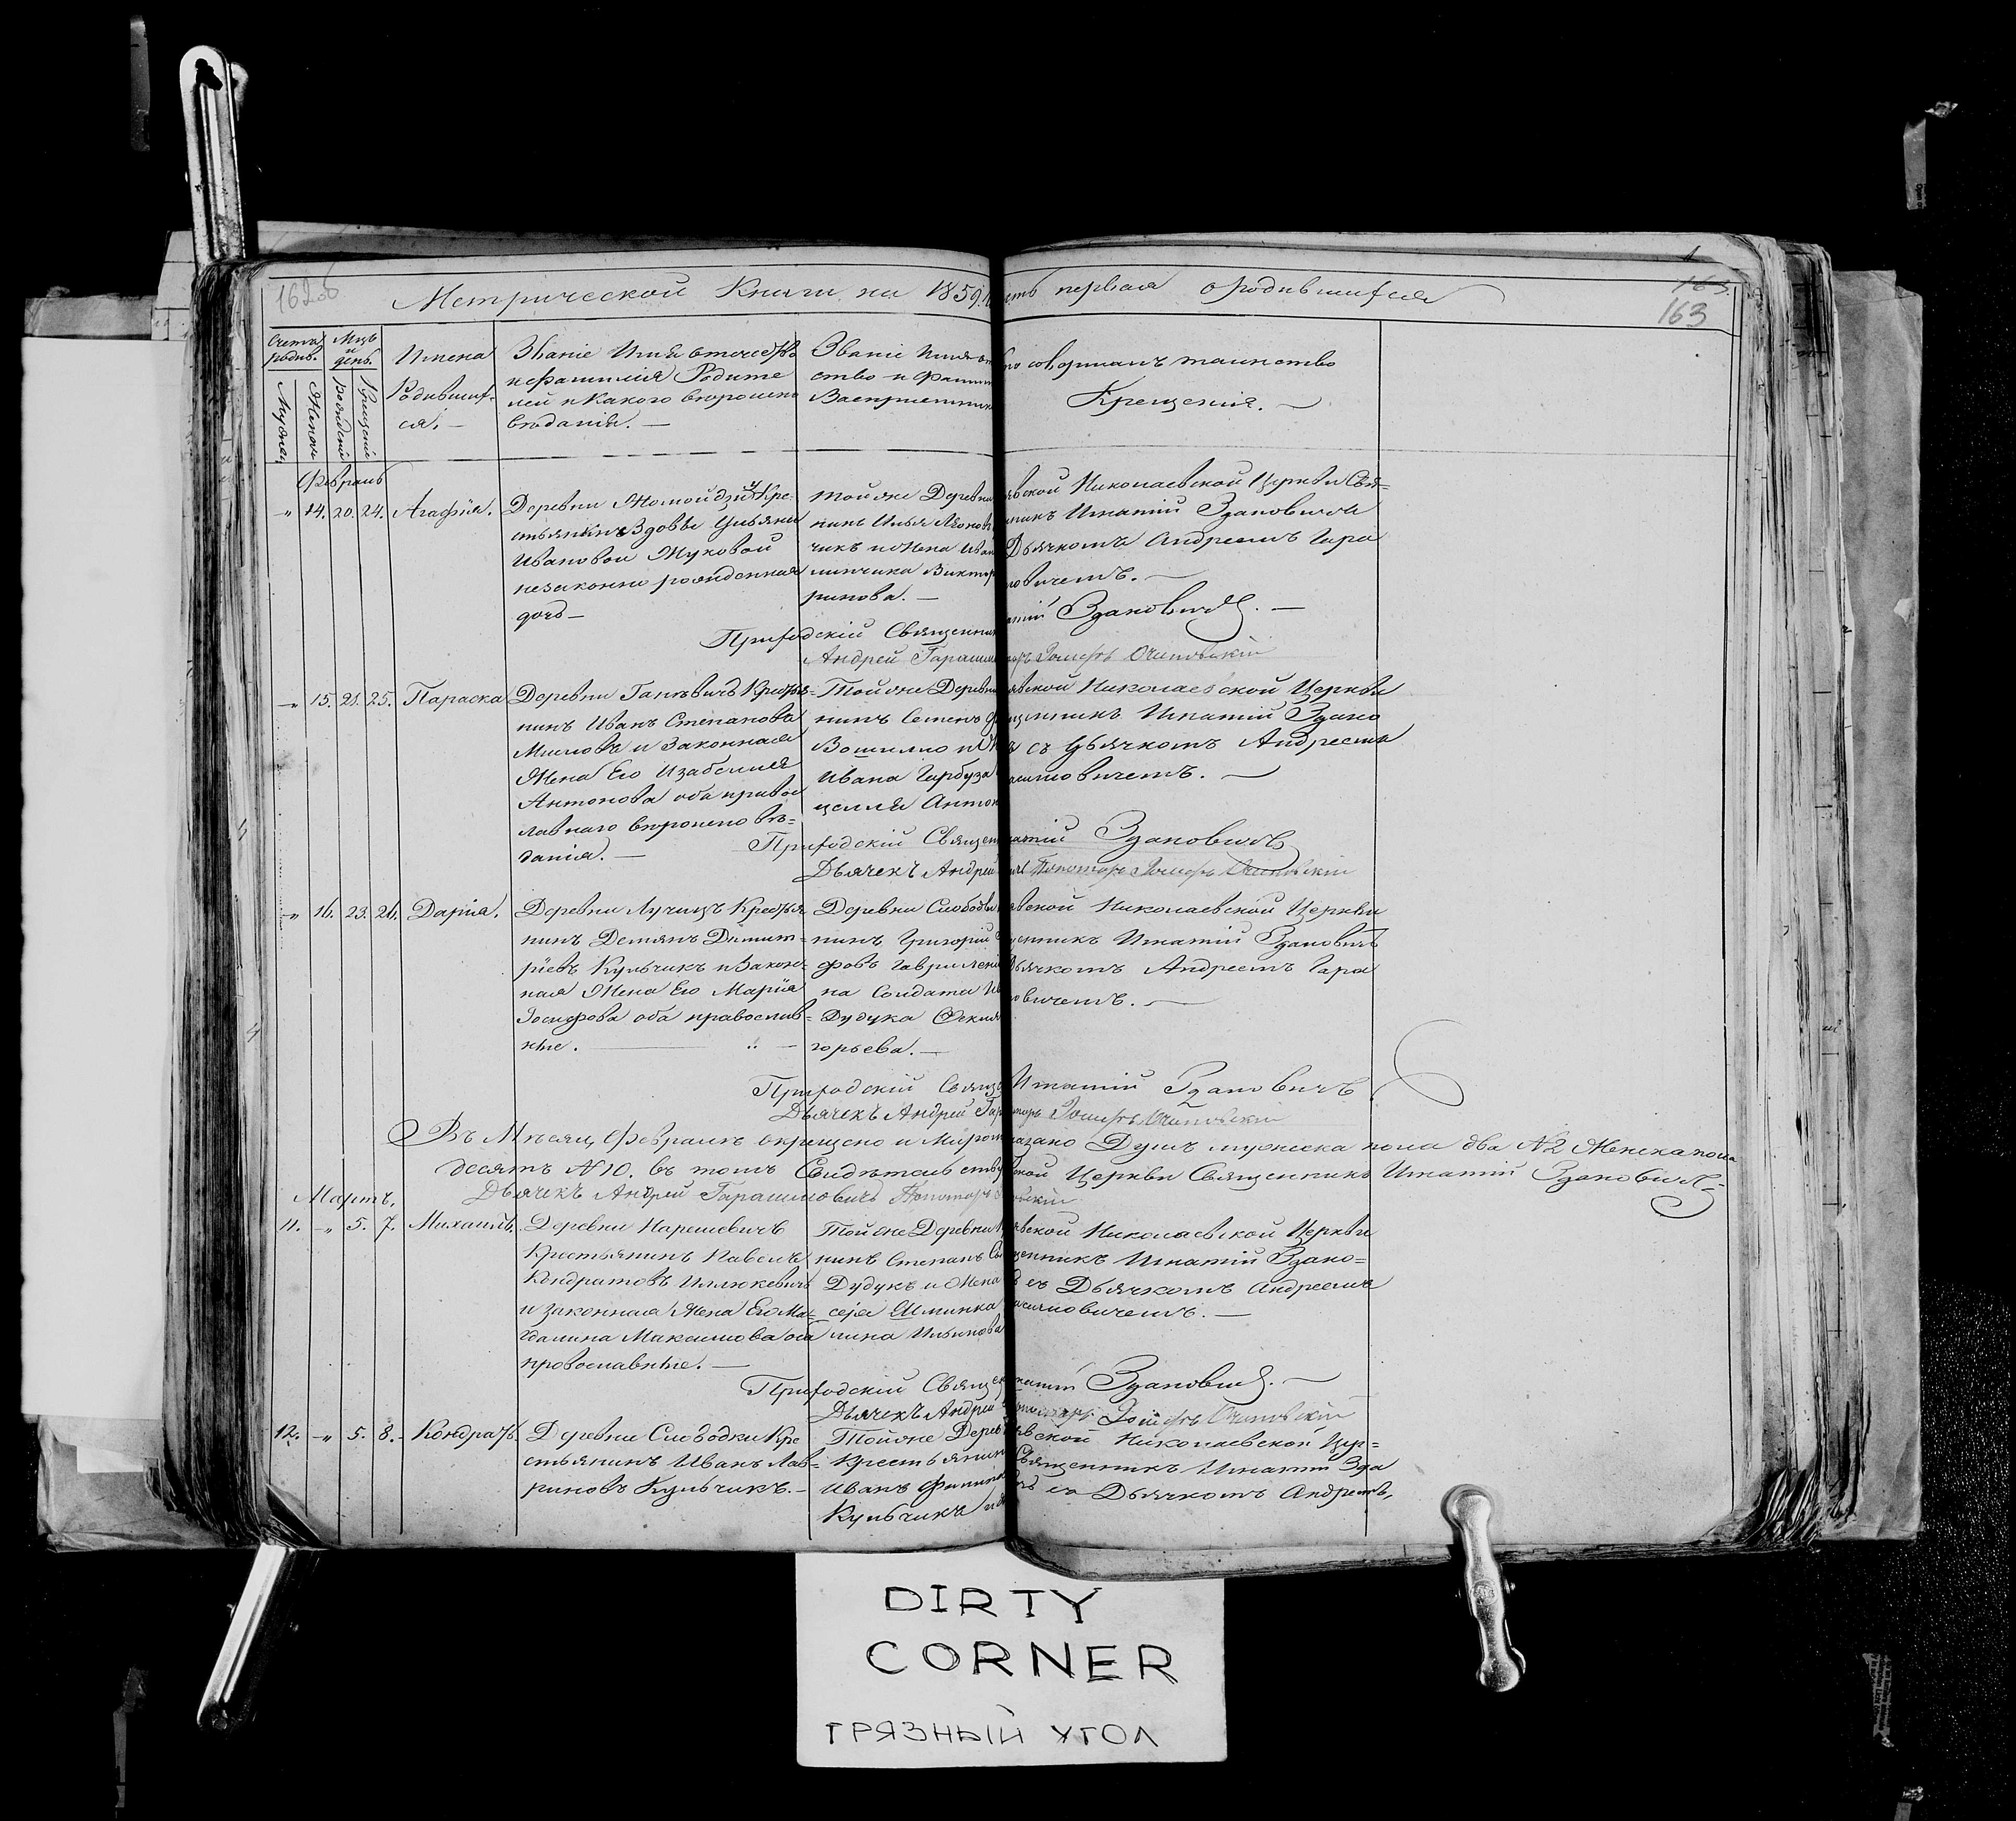 162об
163
Метрической Книги на 1859 первая о родившихся
Счетъ родив.
Мцъ и день.
Мужеск.
Женск.
Рожденія
Крещенія
Имена
Родивших-
ся. —
Званіе Имя отчество
и фамилія Родите
лей и Какого вероиспо
веданія. —
Званіе Имя от
ство и Фамил
Воспріемник
совершалъ таинство
Крещенія. —
Февраль
" 14. 20. 24. Агафія.
Деревни Жомойдзи Кре-
стьянки Вдовы Ульяны
Ивановой Жуковой
незаконно рожденная
дочь —
Той же Деревни
нинъ Илья
чикъ и Жена Иван
Виктор
ринова. —
вской Николаевской Церкви Свя=
никъ Игнатій Здановичъ
Дьячкомъ Андреемъ Гара
овичемъ. —
Приходскій Священник
атій Здановичъ. —
Андрей Гарашим
Очаповскій
" 15. 21. 25. Параска
Деревни Ганевичъ Крестья=
нинъ Иванъ Степановъ
и Законная
Жена Его Изабелля
Антонова оба право
славнаго вероиспове=
данія. —
Той же Деревни
нинъ Семенъ
Вошило и
Ивана Гарбуза
целля Антон
вской Николаевской Церкви
щенникъ Игнатій Здано
съ Дьячкомъ Андреемъ
асимовичемъ. —
Приходскій Священ
атій Здановичъ
Дьячекъ Андрей
Пономарь Очаповскій
" 16. 23. 26. Дарія.
Деревни Лучицъ Крестья
нинъ Демянъ Димит=
ріевъ Кульчикъ и Закон-
ная Жена Его Марія
Іосифова оба православ=
ные. —
Деревни Слободки
нинъ Григорій
фовъ Гаврилени
на Солдата Ив
Дудука
горьева. —
вской Николаевской Церкви
щенникъ Игнатій Здановичъ
Дьячкомъ Андреемъ Гара
овичемъ. —
Приходскій Священ
Игнатій Здановичъ
Дьячекъ Андрей Гар
Очаповскій
Въ Месяц Февралъ окрещено и Миропомазано Душъ мужеска пола два №2 Женска пола
десять №10. въ томъ Свидетельству
ской Церкви Священникъ Игнатій Здановичъ
Дьячекъ Андрей Гарашимовичъ Пономарь
Мартъ.
11. " 5. 7. Михаилъ.
Деревни Нарешевичъ
Крестьянинъ Павелъ
Кондратовъ Иллюкевичъ
и законная Жена Его Ма-
гдалина Максимова оба
православные. —
Той же Деревни
нинъ Степанъ
Дудукъ и Жена
лина Ильинова
вской Николаевской Церкви
щенникъ Игнатій Здано=
съ Дьячкомъ Андреемъ
асимовичемъ. —
Приходскій Священ
натій Здановичъ. —
Дьячекъ Андрей
Очаповскій
12. " 5. 8. Кондратъ
Деревни Слободки Кре
стьянинъ Иванъ Лав=
риновъ Кульчикъ. —
Той же Дерев
Крестьянин
Иванъ
Кульчикъ и
вской Николаевской Цер=
Священникъ Игнатій Зда
съ Дьячкомъ Андреемъ,
DIRTY
CORNER
ГРЯЗНЫЙ УГОЛ